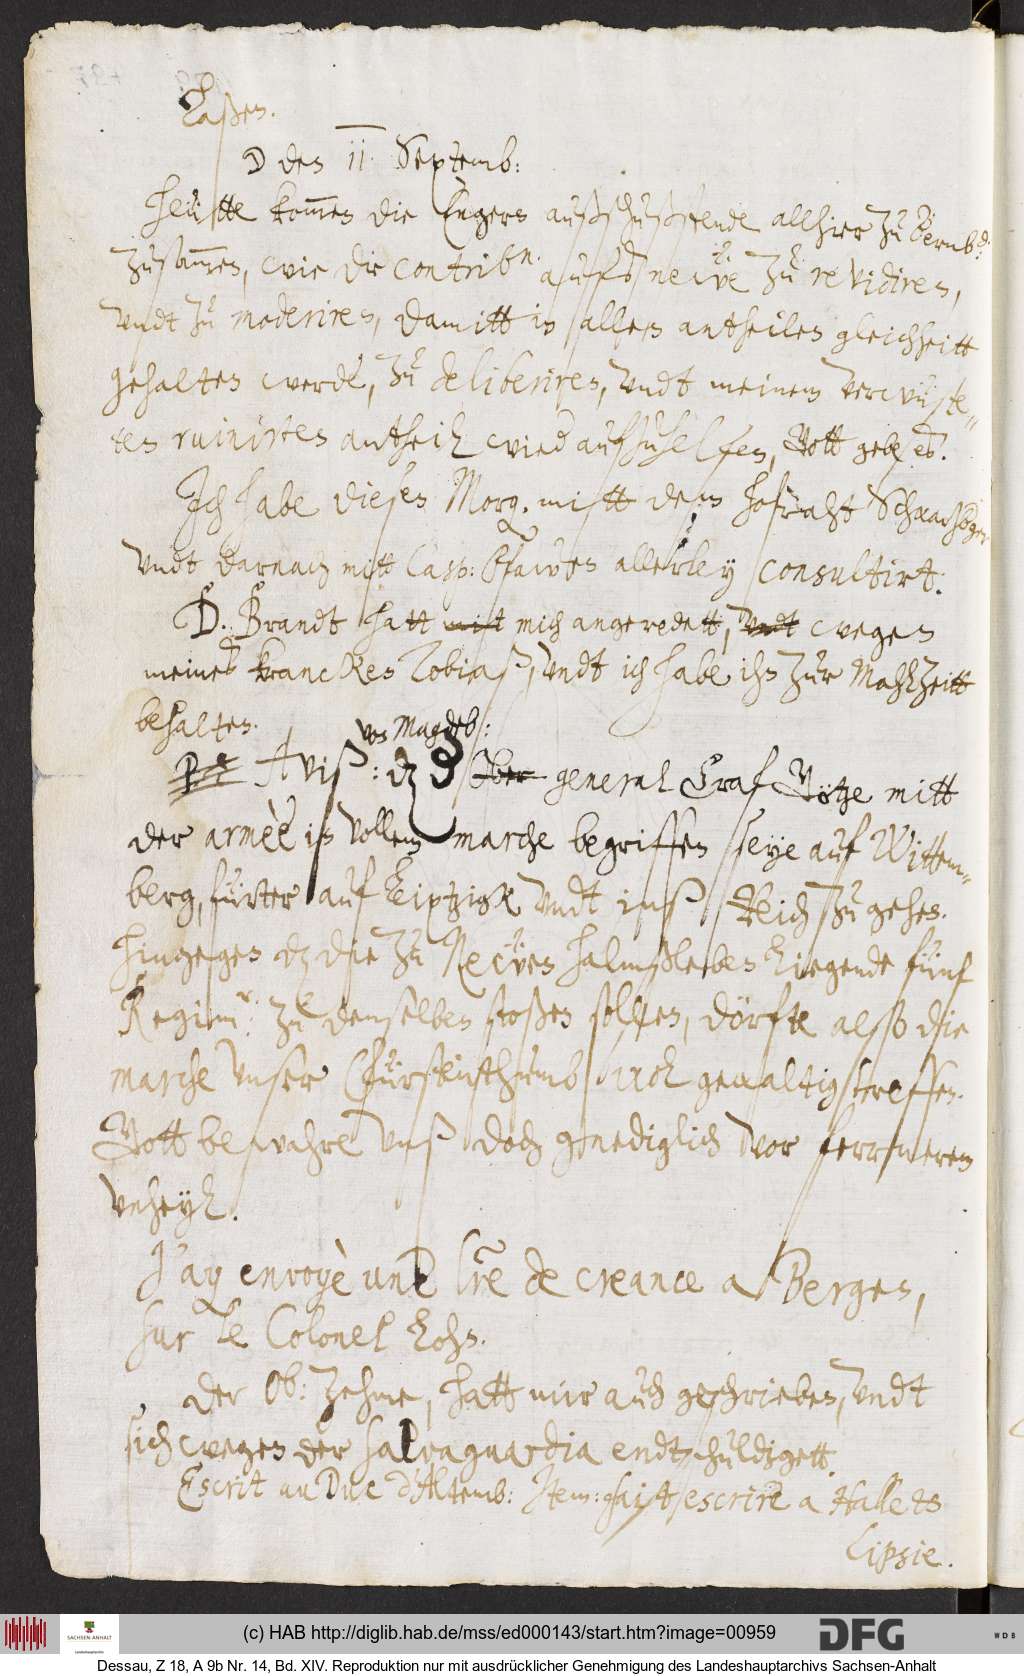 laßen.
☽ den 11. Septemb:
Heütte kommen die Engern außschußstende allhier zu Bernb:
zusammen, wie die contrib. aufs neüe zu revidiren,
vndt zu moderiren, damitt in allen antheilen gleichheitt
gehalten werde, zu deliberiren, vndt meinem verwüste-
ten ruinirten antheil wied aufzuhelfen, Gott gebe es.
Ich habe diesen Morg. mitt dem hofraht Schwartzberger
vndt darnach mitt Casp: Pfawen allerley consultirt.
D. Brandt hatt mit mich angeredett, vndt wegen
meines krancken Tobiaß, vndt ich habe ihn zur Mahlzeitt
behalten.
von Magdeb:
Aviß: dz der general Graf Götze mitt
der armèe in vollem marche begriffen seye auf Wittem-
berg, fürter auf Leiptzigk vndt inß Reich zu gehen.
Hingegen dz die zu Newen halmßleben liegende fünf
Regimr: zu denselben stoßen sollen, dörfte also die
marche vnser Fürstenthumb auch gewaltig treffen.
Gott bewahre vnß doch gnediglich vor fernerem
vnheyl.
J'ay envoyè une lre de creance a Bergen,
sur le Colonel Lohs.
Der Ob: Zehme, hatt mir auch geschrieben, vndt
sich wegen der salvaguardia endtschuldigett.
Escrit au Duc d'Altemb: Item: fait escrire a Halle et a
Lipsie.
(c) HAB http://diglib.hab.de/mss/ed000143/start.htm?image=00959
SACHSEN-ANHALT
Landeshauptarchiv
DFG
WDB
Dessau, Z 18, A 9b Nr. 14, Bd. XIV. Reproduktion nur mit ausdrücklicher Genehmigung des Landeshauptarchivs Sachsen-Anhalt